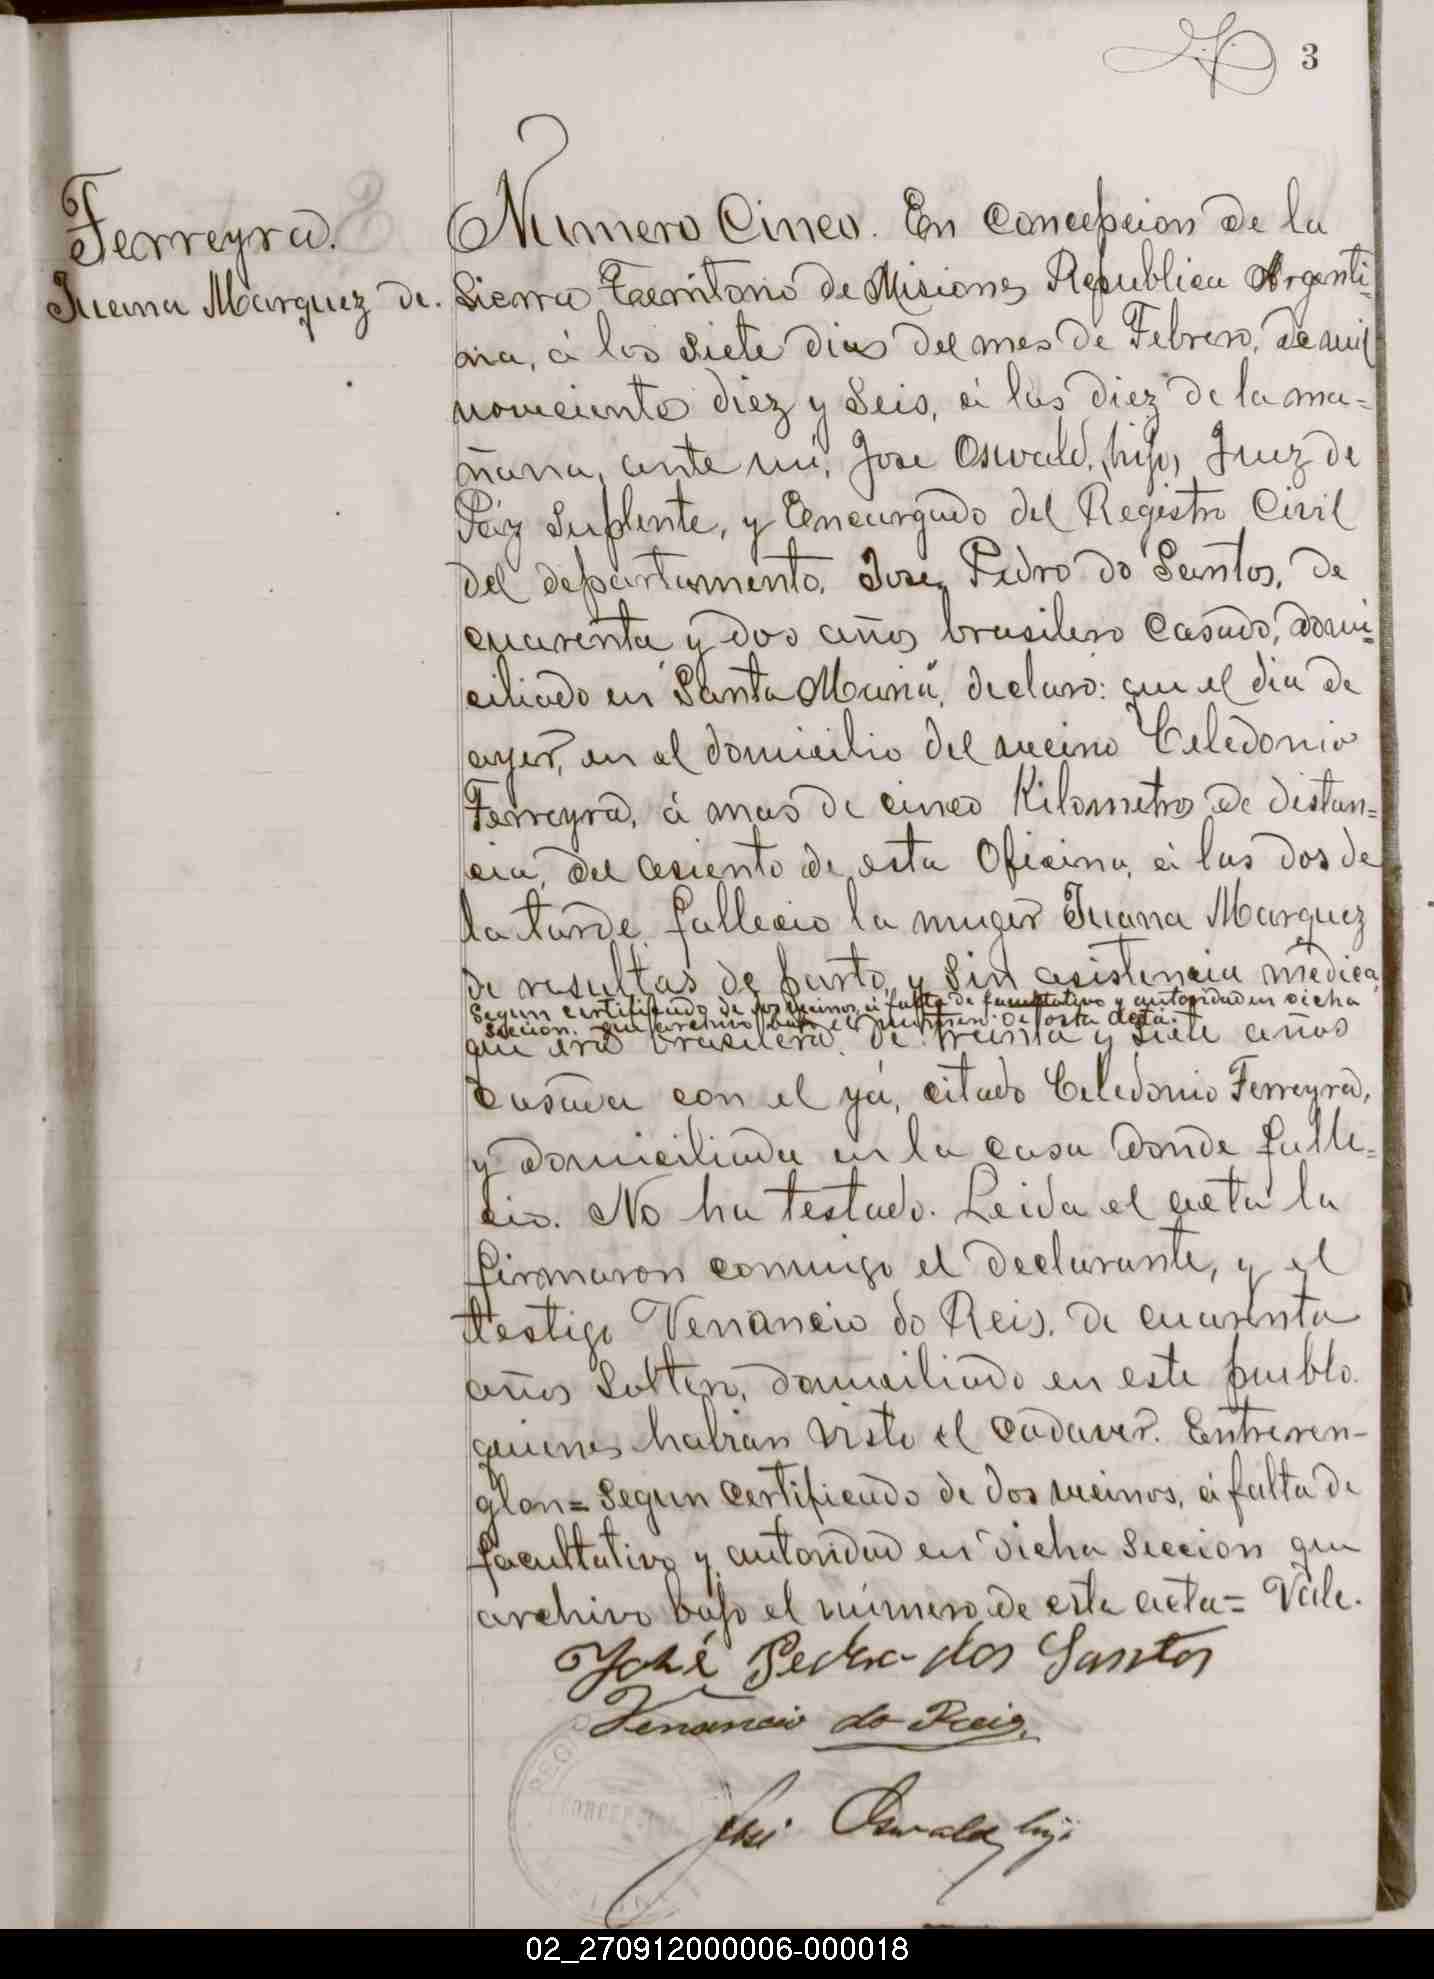 3
Ferreyra.
Juana Marquez de.
Numero Cinco. En Concepcion de la
Sierra Territorio de Misiones Republica Argenti-
na, á los siete dias del mes de Febrero, de mil
novecientos diez y seis, á las diez de la ma=
ñana, ante mí, Jose Oswald, hijo, Juez de
Páz Suplente, y Encargado del Registro Civil
del departamento, Jose Pedro do Santos, de
cuarenta y dos años brasilero casado, domi=
ciliado en "Santa Maria", declaró: que el dia de
ayer, en el domicilio del vecino Celedonio
Ferreyra, á mas de cinco Kilometros de distan=
cia, del asiento de esta Oficina, á las dos de
la tarde, fallecio la muger Juana Marquez
de resultas de parto, y sin asistencia medica,
segun certificado de dos vecinos, á falta de facultativo y autoridad en dicha
seccion. que archivo bajo el numero de esta acta.
que era brasilera. de treinta y siete años
casada con el yá, citado Celedonio Ferreyra,
y domiciliada en la casa donde falle=
cio. No ha testado. Leida el acta la
firmaron conmigo el declarante, y el
testigo Venancio do Reis. de cuarenta
años soltero, domiciliado en este pueblo.
quienes habian visto el cadaver. Entreren-
glon = segun certificado de dos vecinos, á falta de
facultativo y autoridad en dicha seccion que
archivo bajo el número de esta acta = Vale.
José Pedro dos Santos
Venancio do Reis
José Oswald, hijo
02_270912000006-000018